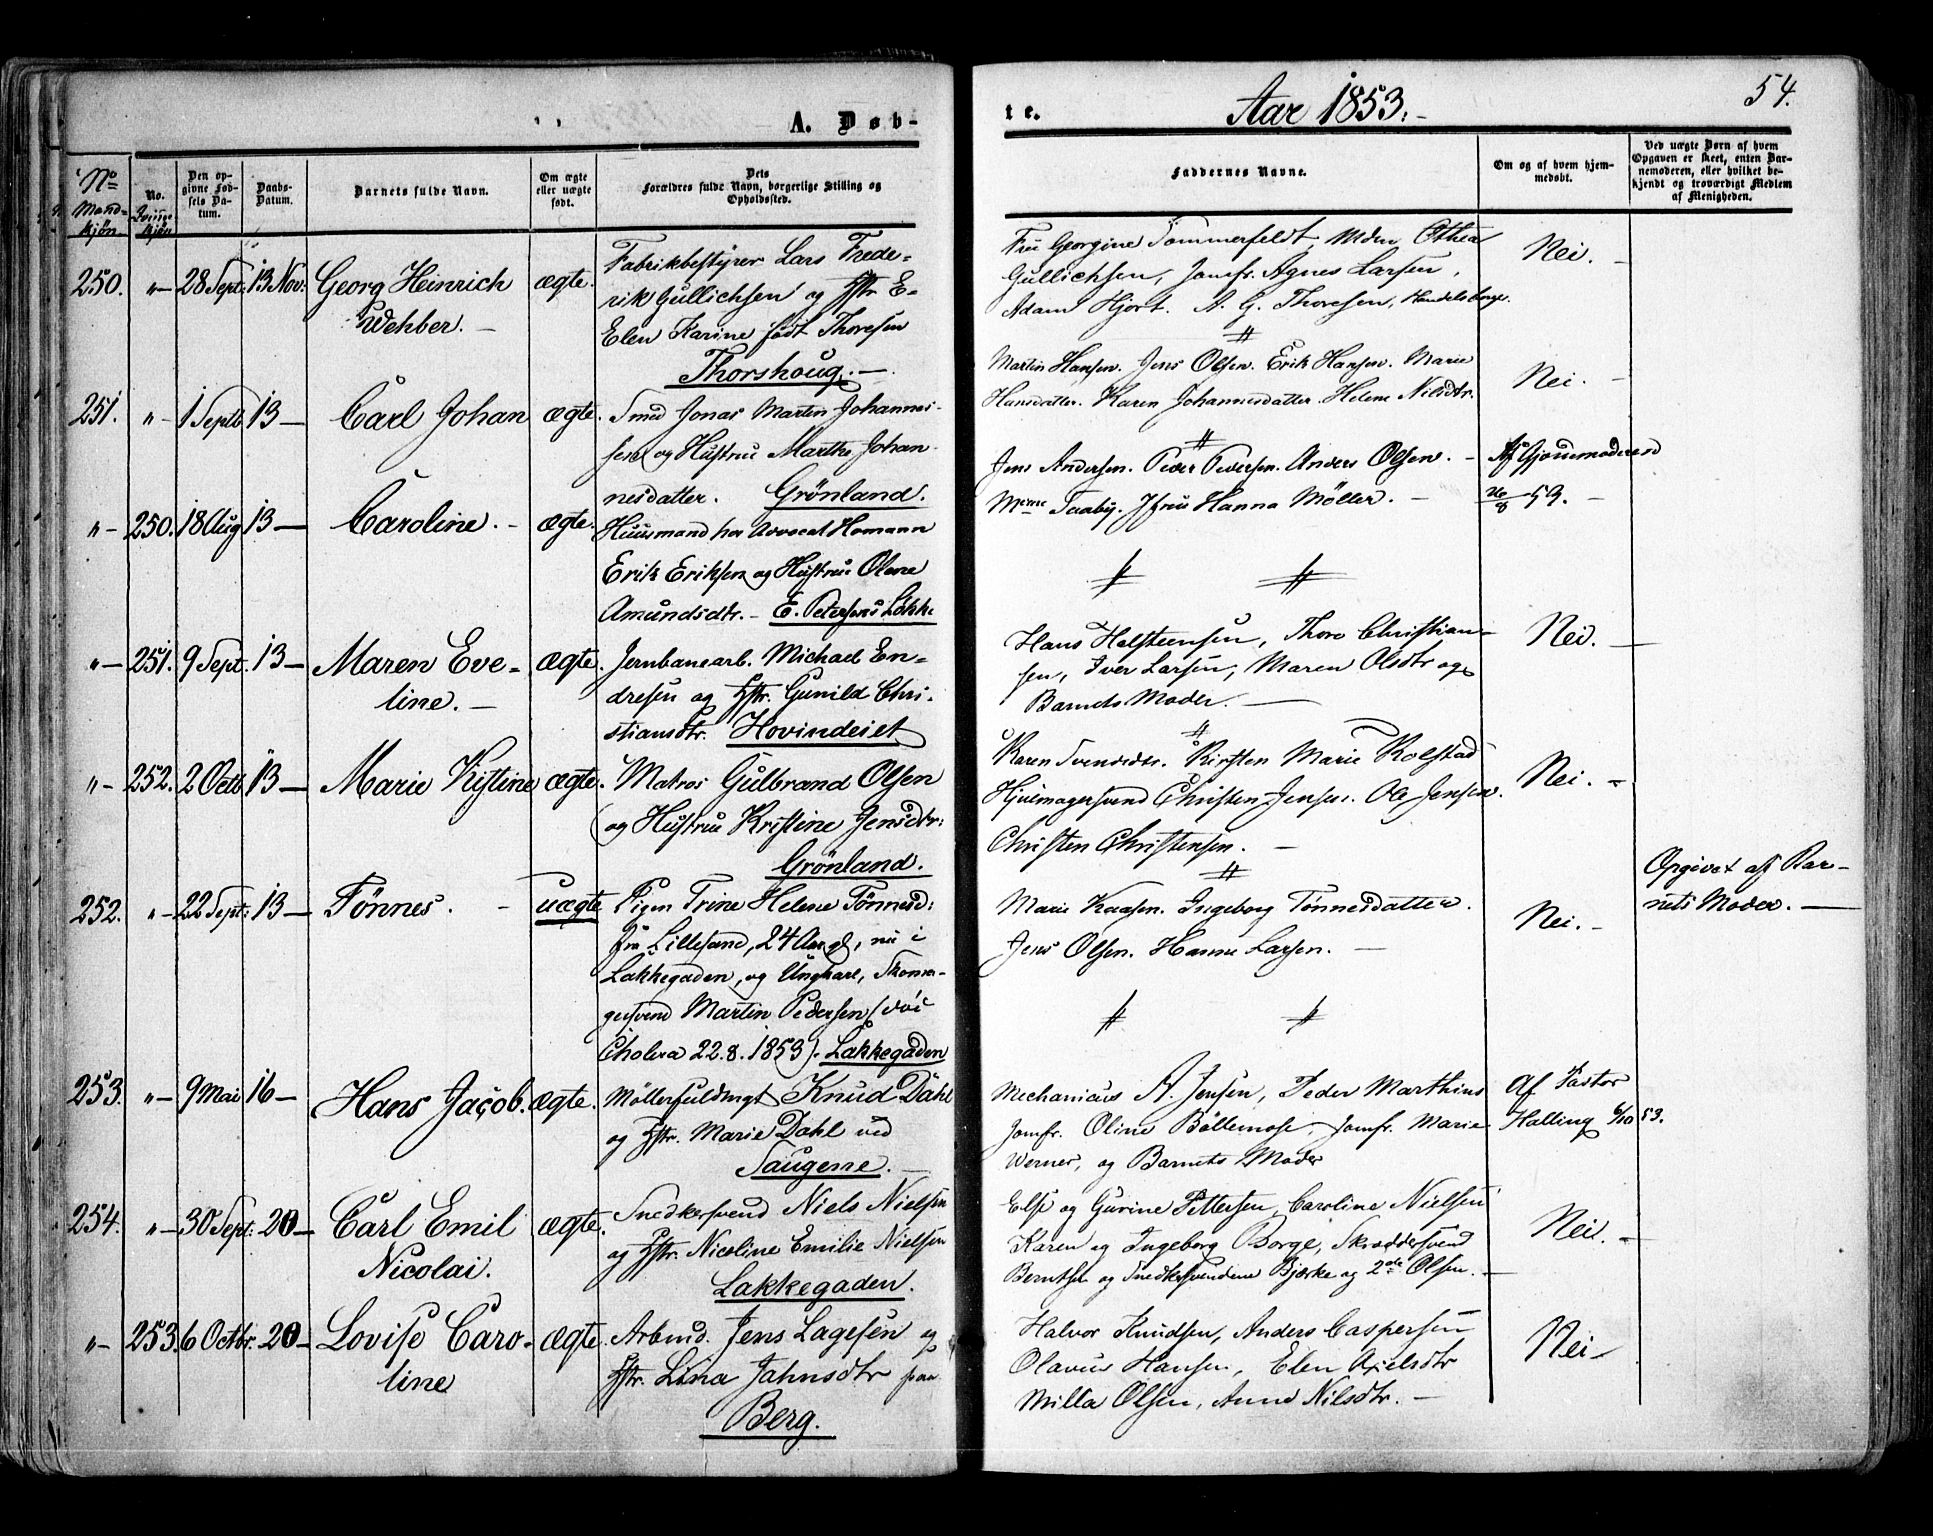 A. Døb-
No Mandkjøn
No. Qvindekjøn
Den opgivne Fødsels Datum.
Daabs-Datum.
Barnets fulde Navn.
Om ægte eller uægte født.
Dets Forældres fulde Navn, borgerlige Stilling og Opholdssted.
250. "- 28 Sept: 13 Nov: Georg Heinrich ægte. Fabrikbestyrer Lars Frede-
Wehber. - rik Gullichsen og Hstr. E-
Elen Karine født Thoresen
Thorshoug. -
251. "- 1 Septb 13 - Carl Johan ægte. Smed Jonas Marten Johannes-
sen og Hustru Marthe Johan-
nesdatter. Grönland.
"- 250. 18 Aug 13 - Caroline. - ægte. Huusmand hos Advocat Homann
Erik Eriksen og Hustru Olene
Amundsdtr. - E. Petersens Løkke
"- 251. 9 Sept. 13 - Maren Eve- ægte. Jernbanearb. Michael En-
line. - dresen og Hstr. Gunild Chri-
stiansdtr. Hovindeiet
"- 252. 2 Octb. 13 - Marie Kistine ægte. Matros Gulbrand Olsen
og Hustrue Kristine Jensdtr:
Grönland.
252. "- 22 Sept: 13 - Tönnes. - uægte Pigen Trine Helene Tønnesd:
fra Lillesand, 24 Aar gl, nu i
Lakkegaden, og Ungkarl, Skoma-
gersvend Martin Pedersen (død i
Cholera 22.8.1853). Lakkegaden
253. "- 9 Mai 16 - Hans Jacob. ægte. Møllerfuldmgt Knud Dahl
og Hstr. Marie Dahl ved
Saugene. -
254. "- 30 Sept: 20 - Carl Emil ægte. Snedkersvend Niels Nielsen
Nicolai. og Hstr. Nicoline Emilie Nielsen
Lakkegaden.
"- 253. 6 Octbr. 20 - Lovise Caro- ægte. Arbmd. Jens Lagesen og
line Hstr. Lina Jahnsdtr paa
Berg.
te. Aar 1853. - 54.
Faddernes Navne.
Om og af hvem hjemmedøbt.
Ved uægte Børn af hvem Opgaven er skeet, enten Barnemoderen, eller hvilket bekjendt og troværdigt Medlem af Menigheden.
Fru Georgine Sommerfeldt, Mdm. Othea Nei. -
Gullichsen, Jomfr. Agnes Larsen,
Adam Hjort. A. G. Thoresen, Handelsborger.
Martin Hansen. Jens Olsen. Erik Hansen. Marie Nei. -
Hansdatter. Karen Johannesdatter. Helene Nilsdtr.
Jens Andersen. Peder Pedersen. Anders Olsen. - Af Gjordemoderen d
Mme Taaby. Jfru Hanna Møller. - 26/8 53. -
Hans Helsteensen, Thore Christian- Nei. -
sen, Iver Larsen, Maren Olsdtr og
Barnets Moder. -
Karen Svensdtr. Kirsten Marie Rolstad
Hjulmagersvend Christen Jensen. Ole Jensen. Nei. -
Christen Christensen. -
Opgivet af Bar-
Marie Kaasen. Ingeborg Tønnesdatter. Nei. - nets Moder. -
Jens Olsen. Hanne Larsen. -
Mechanicus A. Jensen, Peder Marthins Af Pastor
Jomfr. Oline Böllemose, Jomfr. Marie Halling 6/10 53.
Werner, og Barnets Moder
Else og Gurine Pettersen, Caroline Nielsen Nei. -
Karen og Ingeborg Borge, Skræddersvend
Berntsen og Snedkersvendene Bjerke og 2de Olsen. -
Halvor Knudsen, Anders Caspersen Nei -
Olavus Hansen, Elen Axelsdtr
Milla Olsen, Anne Nilsdtr. -